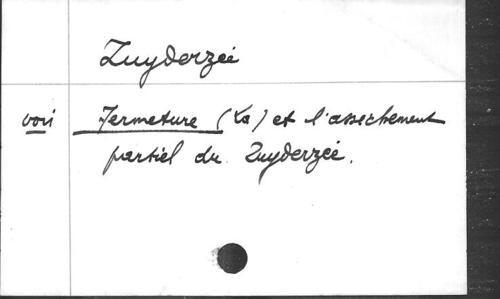 Zuyderzée
voir Fermeture (La) et l'assèchement
partiel du Zuyderzée.